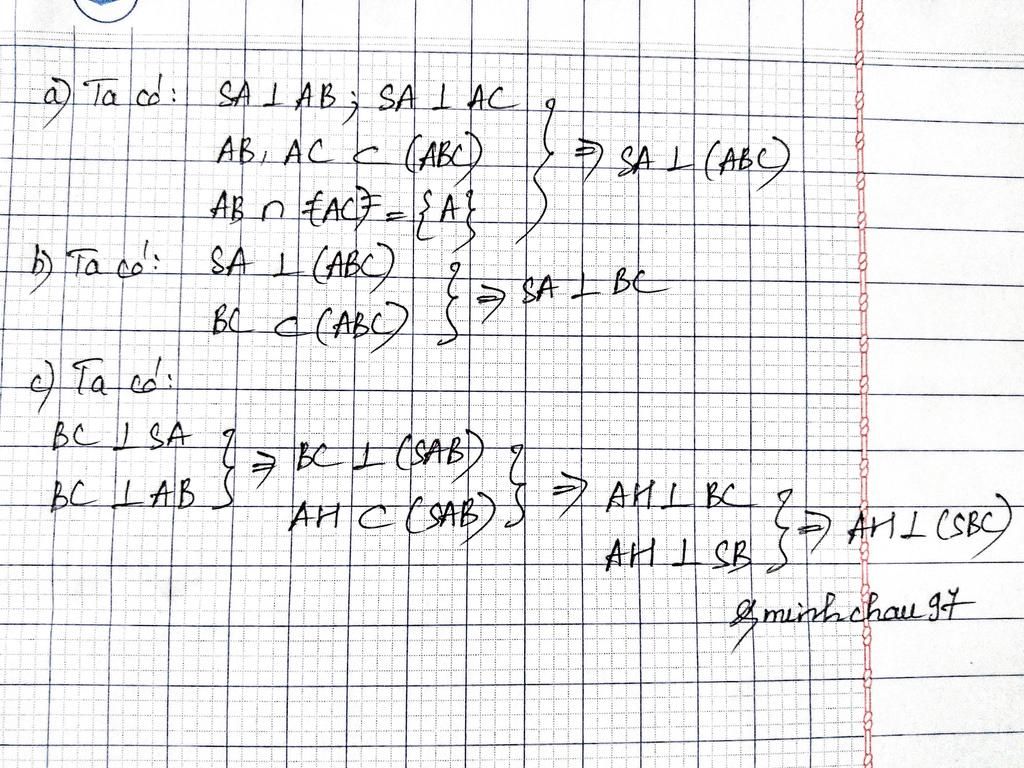 a) Ta có: SA ⊥ AB; SA ⊥ AC
AB, AC ⊂ (ABC) } ⇒ SA ⊥ (ABC)
AB ∩ {AC} = {A}
b) Ta có: SA ⊥ (ABC)
BC ⊂ (ABC) } ⇒ SA ⊥ BC
c) Ta có:
BC ⊥ SA
BC ⊥ AB } ⇒ BC ⊥ (SAB)
AH ⊂ (SAB) } ⇒ AH ⊥ BC
AH ⊥ SB } ⇒ AH ⊥ (SBC)
minhchau97